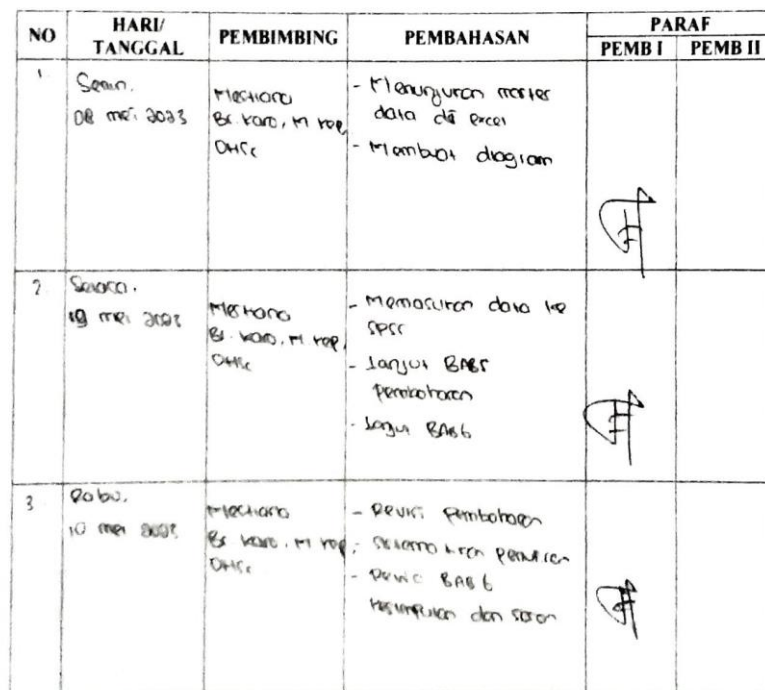 NO HARI/ TANGGAL PEMBIMBING PEMBAHASAN PARAF
PEMB I PEMB II
1. Senin.
08 mei 2023
Mestiana
Br. Karo, M kep,
DHSc
- Menunjukan master
data di excel
- Membuat diagram
2. Selasa.
09 mei 2023
Mestiana
Br. Karo, M. kep,
DHSc
- Memasukan data ke
SPSS
- Lanjut BAB5
Pembahasan
- Lanjut BAB6
3. Rabu.
10 mei 2023
Mestiana
Br Karo, M kep,
DHSc
- Revisi Pembahasan
- penulisan
- Revisi BAB 6
kesimpulan dan saran